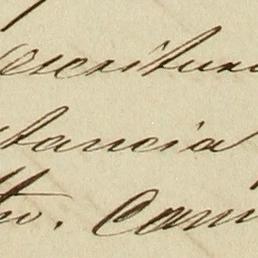 escritura
stancia
to. Cam